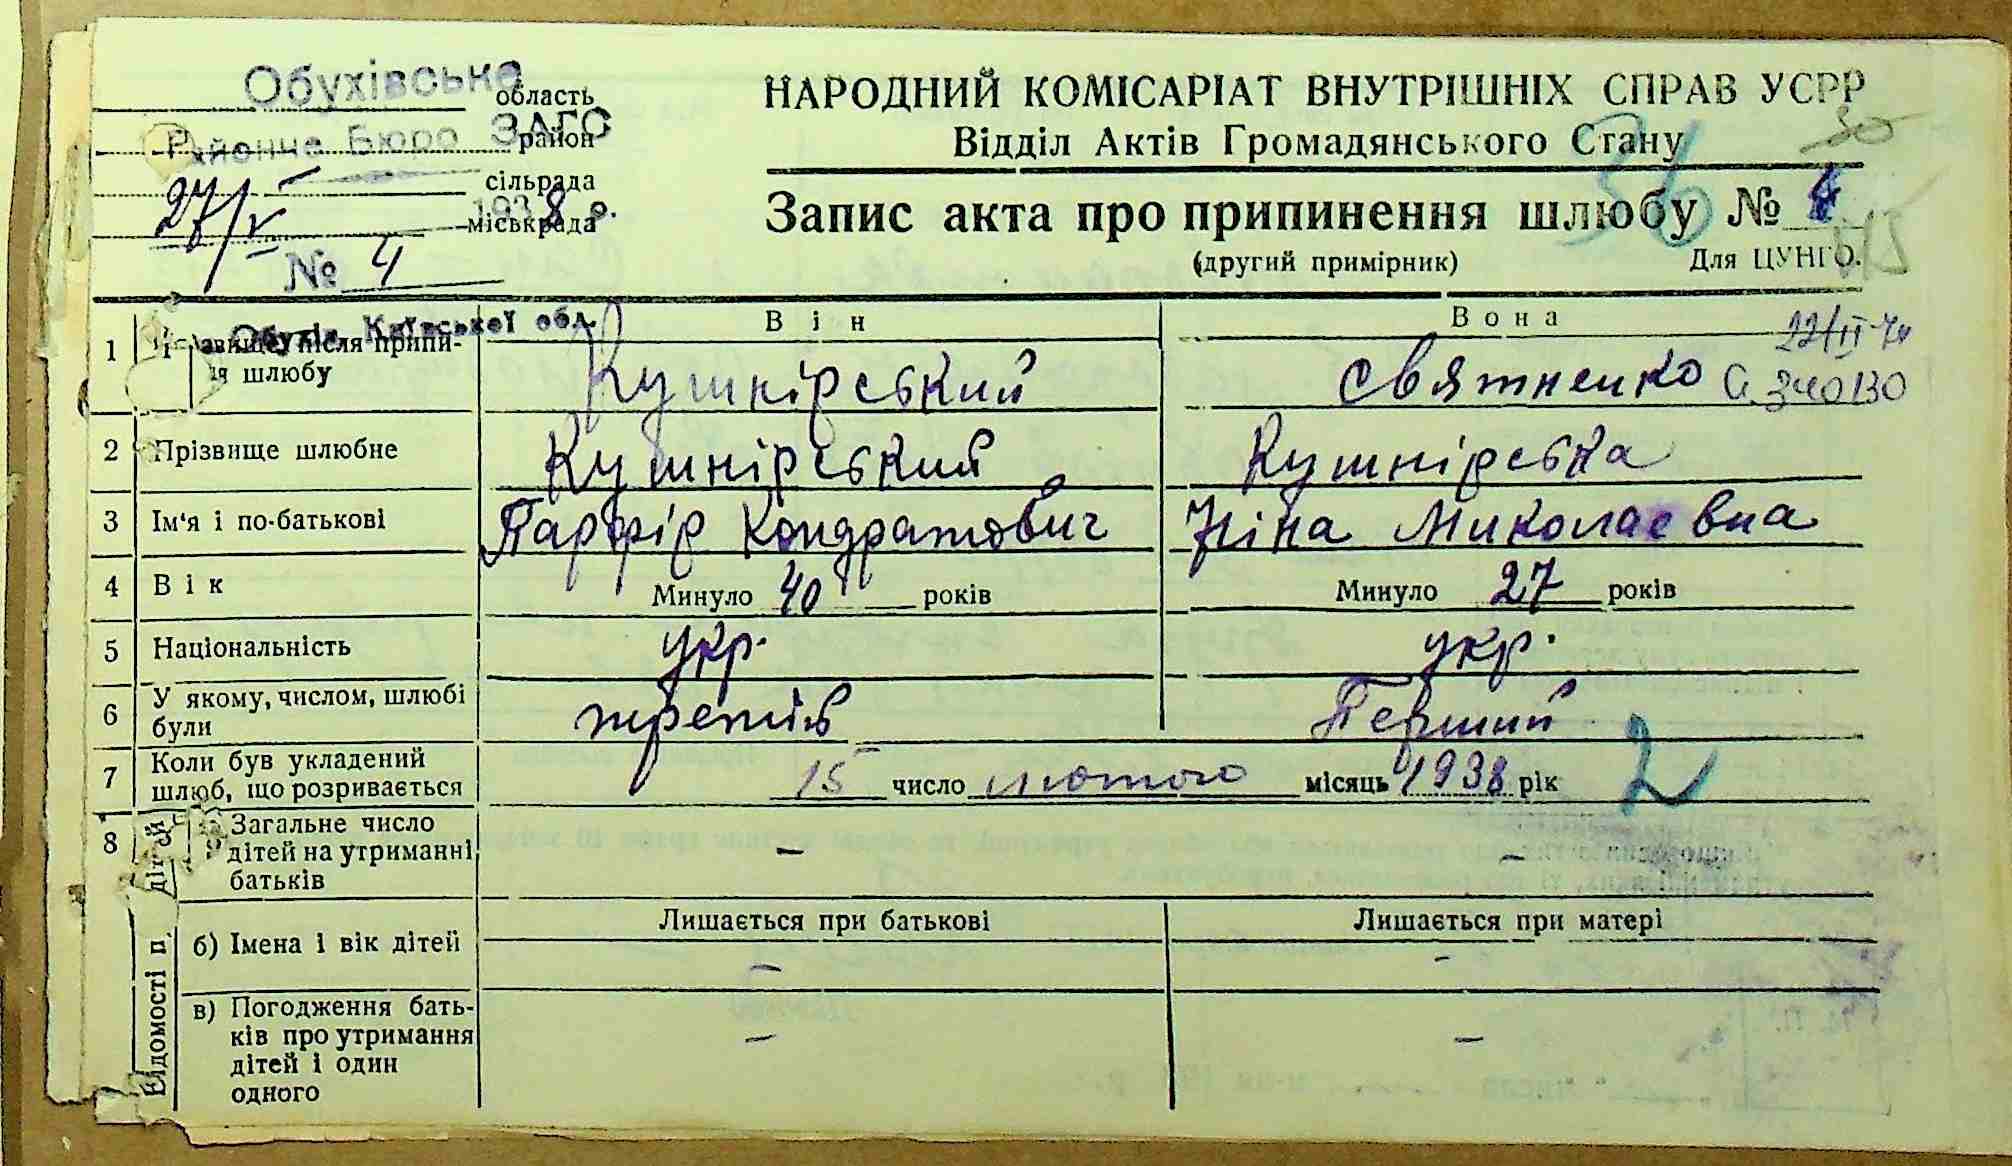 Обухівське
область
Районне Бюро ЗАГС
район
сільрада
27/V 1938 р.
міськрада
№ 4
Обухів, Київської обл.
НАРОДНИЙ КОМІСАРІАТ ВНУТРІШНІХ СПРАВ УСРР
Відділ Актів Громадянського Стану
30
36
Запис акта про припинення шлюбу № 4
(другий примірник) Для ЦУНГО.
Він Вона
22/II-74
1 після припи-
шлюбу Кушнірський Святненко 340130
2 Прізвище шлюбне Кушнірський Кушнірська
3 Ім'я і по-батькові Парфір Кондратович Ніна Миколаєвна
4 Вік Минуло 40 років Минуло 27 років
5 Національність укр. укр.
6 У якому, числом, шлюбі
були третій Перший
7 Коли був укладений
шлюб, що розривається 15 число лютого місяць 1938 рік
2
8 Загальне число
дітей на утриманні
батьків – –
Відомості п. дітей
Лишається при батькові Лишається при матері
б) Імена і вік дітей – -
в) Погодження бать-
ків про утримання
дітей і один
одного – –